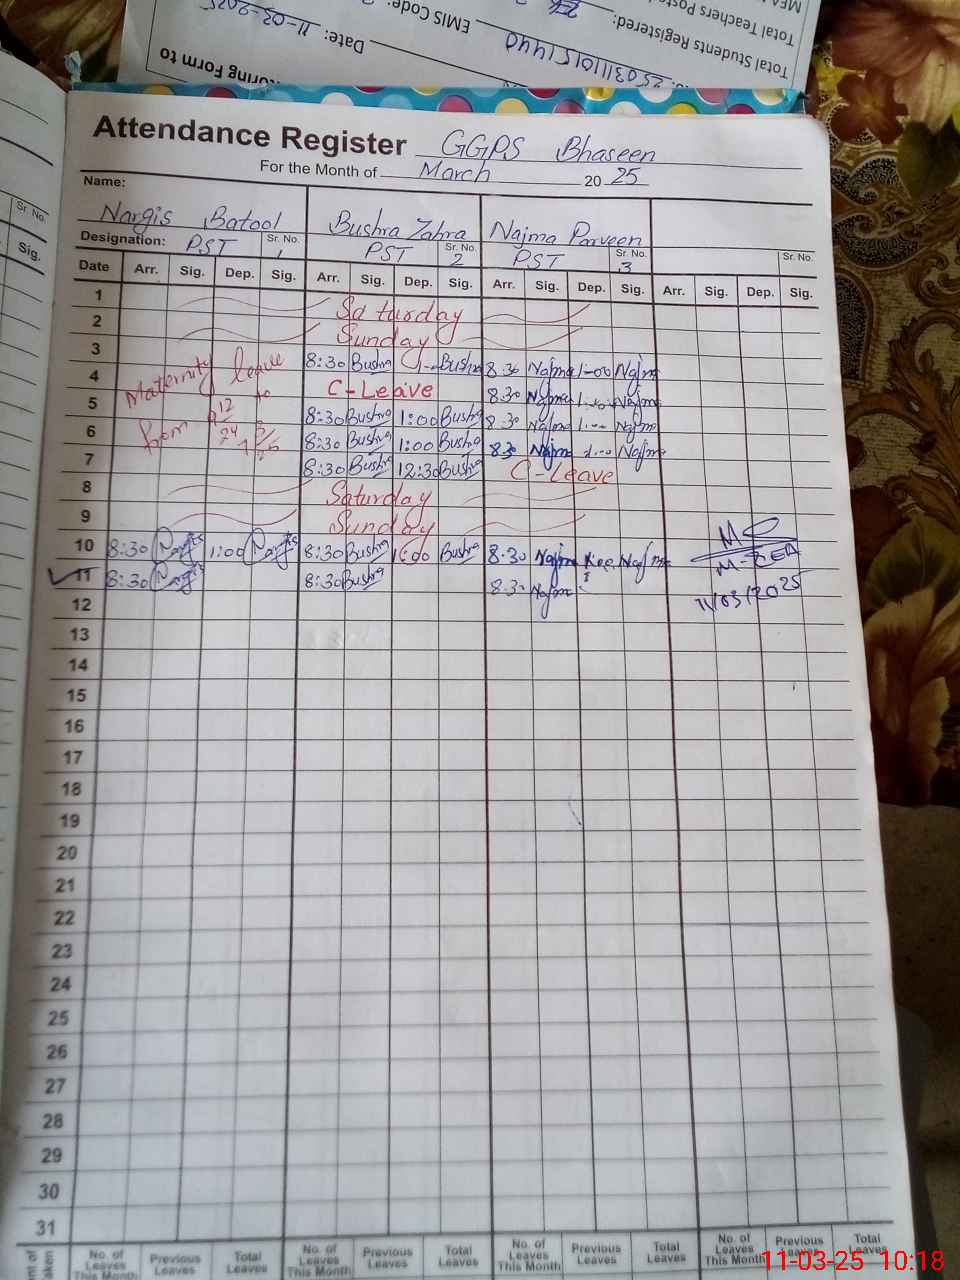 MEA
Total Teachers Poste
Total Students Registered:
EMIS Code:
25031110151440
Date: 11-03-2025
oring Form to
Attendance Register GGPS Bhaseen
For the Month of March 2025
Name:
Nargis Batool Bushra Zahra Najma Parveen
Designation: PST Sr. No. 1 PST Sr. No. 2 PST Sr. No. 3 Sr. No.
Sr. No.
Sig.
Date Arr. Sig. Dep. Sig. Arr. Sig. Dep. Sig. Arr. Sig. Dep. Sig. Arr. Sig. Dep. Sig.
1 Saturday
2 Sunday
3 8:30 Bushra Bushra 8.30 Najma 1-00 Najma
Maternity leave
4 C-Leave 8.30 Najma Najma
to
5 8:30 Bushra 1:00 Bushra 8.30 Najma 1.00 Najma
from
6 8:30 Bushra 1:00 Bushra 8.30 Najma 1.00 Najma
7 8:30 Bushra 12:30 Bushra C-Leave
8 Saturday
9 Sunday
10 8:30 Nargis 1:00 Nargis 8:30 Bushra 1:00 Bushra 8.30 Najma Najma
11 8:30 Nargis 8:30 Bushra 8.30 Najma
11/03/2025
12
13
14
15
16
17
18
19
20
21
22
23
24
25
26
27
28
29
30
31
No. of Leaves This Month Previous Leaves Total Leaves No. of Leaves This Month Previous Leaves Total Leaves No. of Leaves This Month Previous Leaves Total Leaves No. of Leaves This Month Previous Leaves Total Leaves
11-03-25 10:18